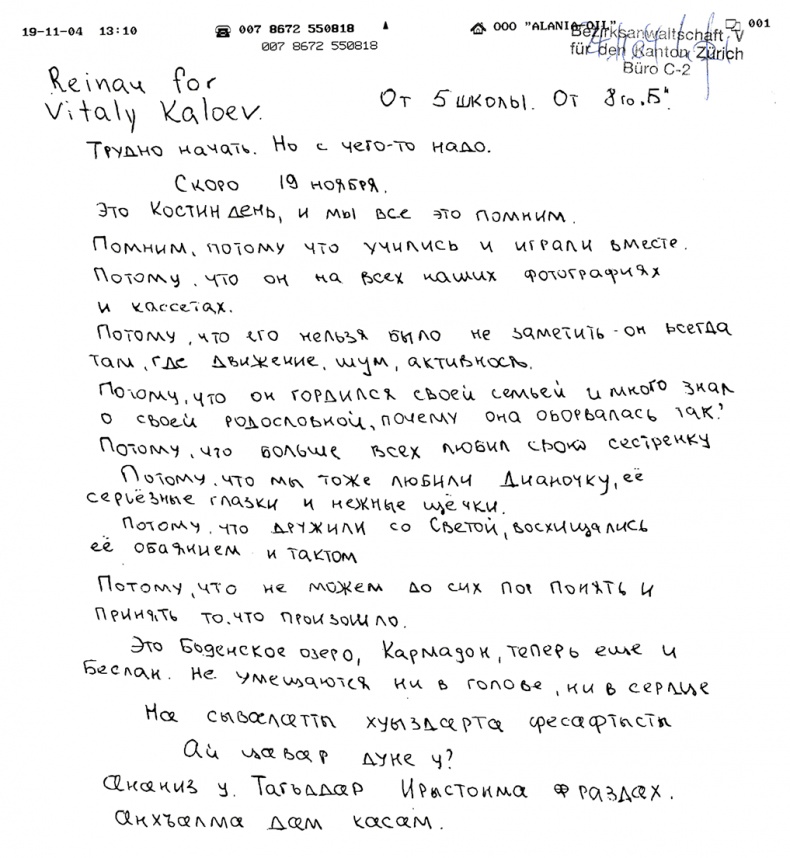 19-11-04 13:10 007 8672 550818 ООО "ALANIA-OIL" 001
007 8672 550818
Bezirksanwaltschaft V
für den Kanton Zürich
Büro C-2
Reinau for
Vitaly Kaloev.
От 5 школы. От 8го „Б"
Трудно начать. Но с чего-то надо.
Скоро 19 ноября.
Это Костин день, и мы все это помним.
Помним, потому что учились и играли вместе.
Потому, что он на всех наших фотографиях
и кассетах.
Потому, что его нельзя было не заметить - он всегда
там, где движение, шум, активность.
Потому, что он гордился своей семьей и много знал
о своей родословной, почему она оборвалась так?
Потому, что больше всех любил свою сестренку
Потому, что мы тоже любили Дианочку, её
серьёзные глазки и нежные щёчки.
Потому, что дружили со Светой, восхищались
её обаянием и тактом
Потому, что не можем до сих пор понять и
принять то, что произошло.
Это Боденское озеро, Кармадон, теперь еще и
Беслан. Не умещаются ни в голове, ни в сердце
На сывæлæттӕ хуыздæртæ фесæфтысты
Ай цавæр дуне у?
Ӕнæниз у. Тагъддæр Ирыстонмæ раздæх.
Ӕнхъæлмæ дæм кæсæм.